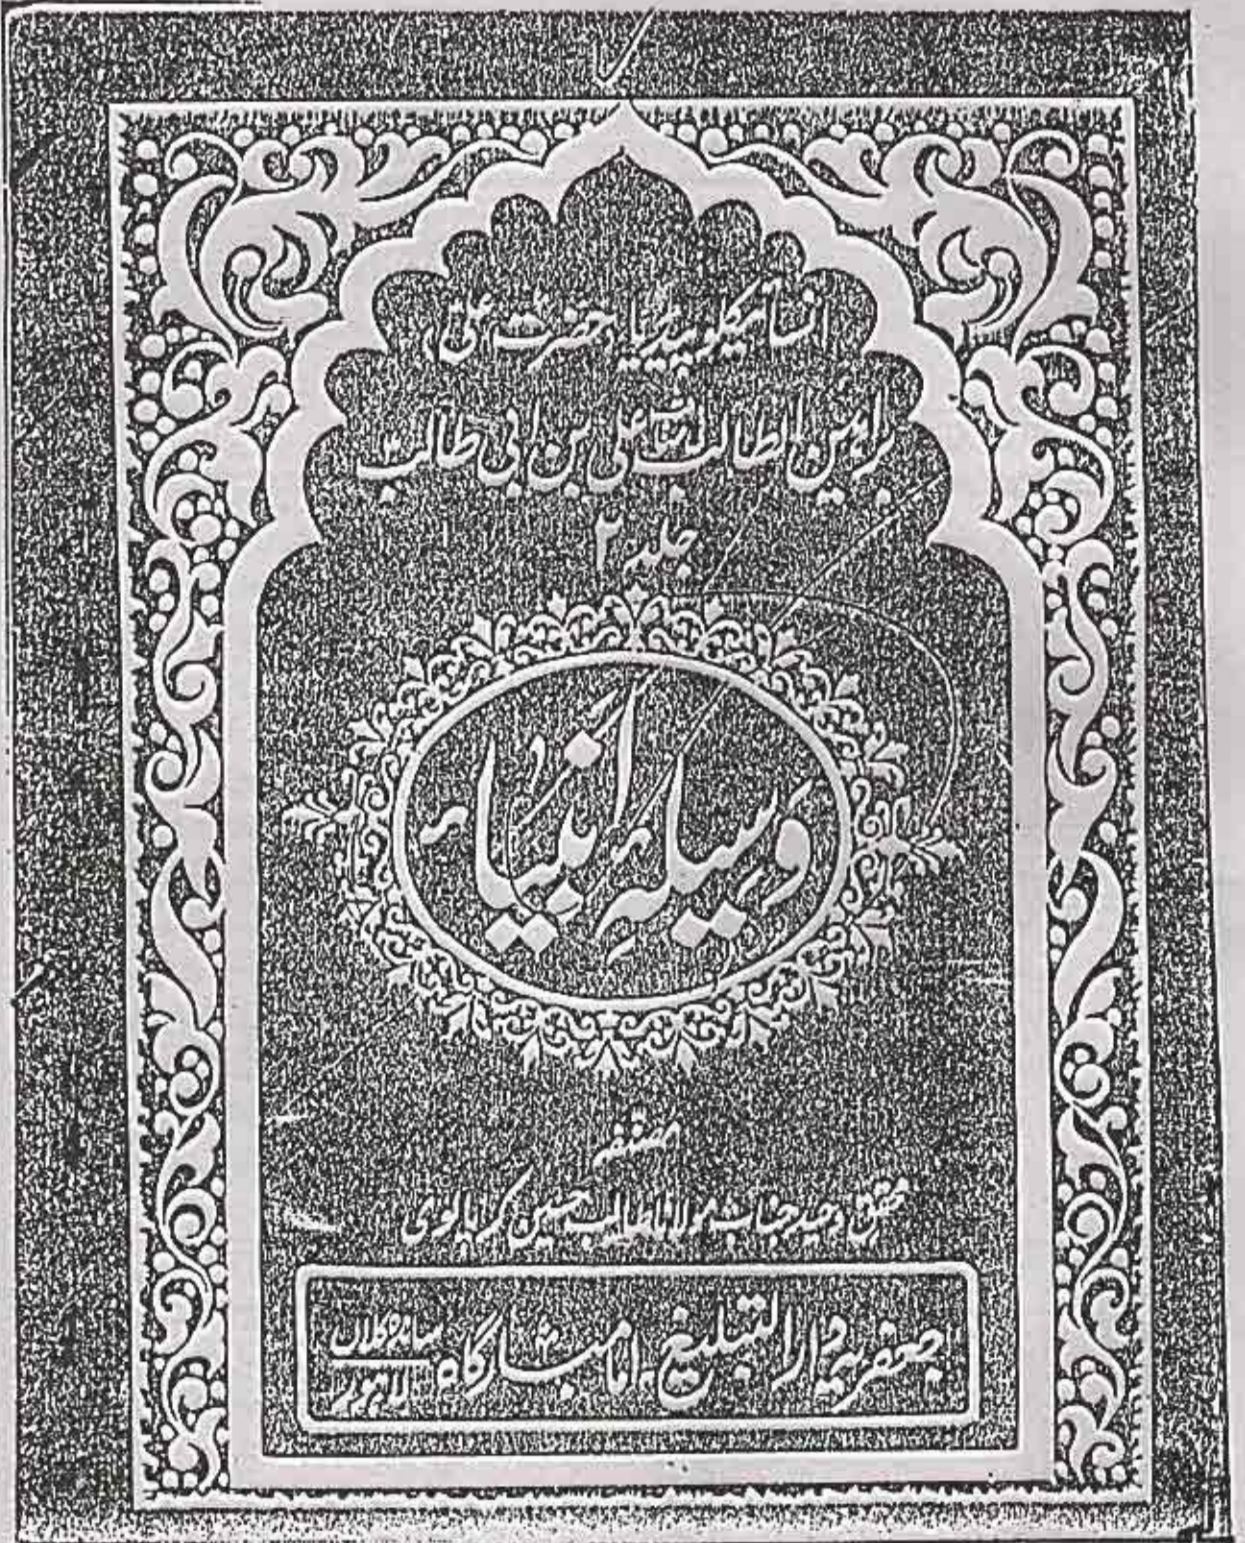 انسائیکلوپیڈیا حضرت علیؑ
براہین الطالب اثبات علی بن ابی طالب
جلد ۲
وسیلہ انبیاء
مصنفہ
محقق وحید جناب مولانا طالب حسین کرپالوی
جعفریہ دار التبلیغ امامبارگاہ
ساندہ کلاں
لاہور